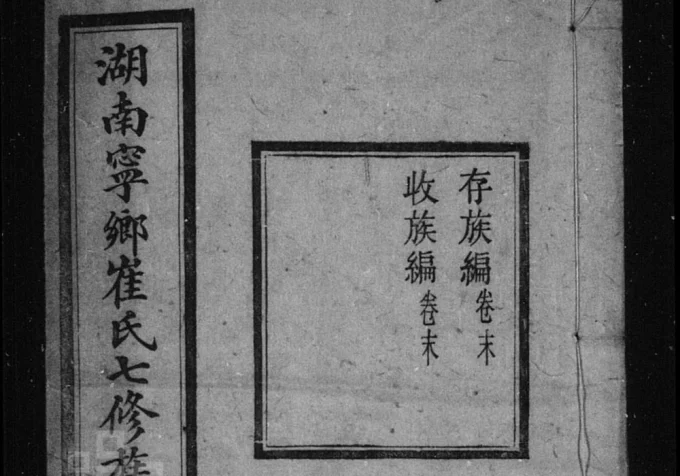 湖南寧鄉崔氏七修族
存族編卷末
收族編卷末